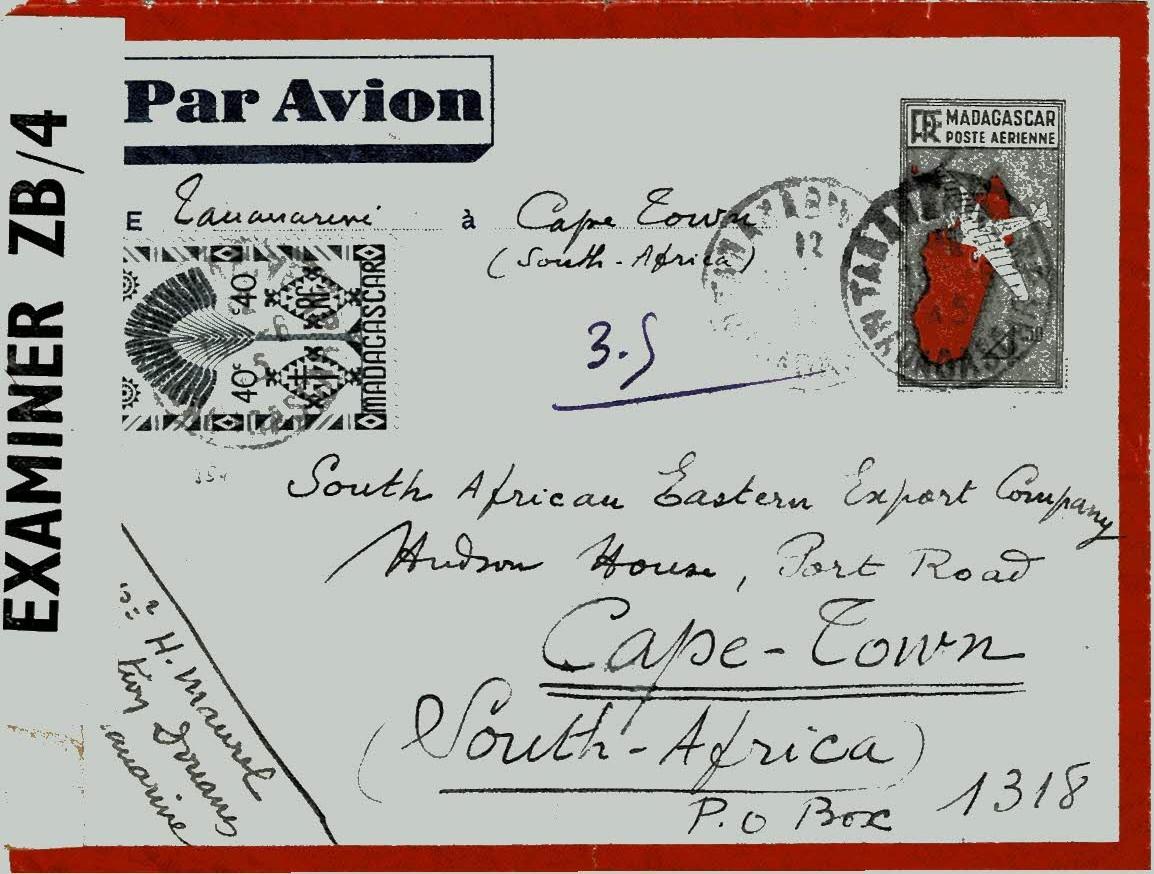 EXAMINER ZB/4
Par Avion
E Tananarive à Cape Town
(South-Africa)
RF MADAGASCAR
POSTE AERIENNE
12
40c 40c
RF
MADAGASCAR
3.5
South African Eastern Export Company
Hudson House, Port Road
Cape-Town
(South-Africa)
P.O Box 1318
H. Maurel
tion Douanes
ananarive